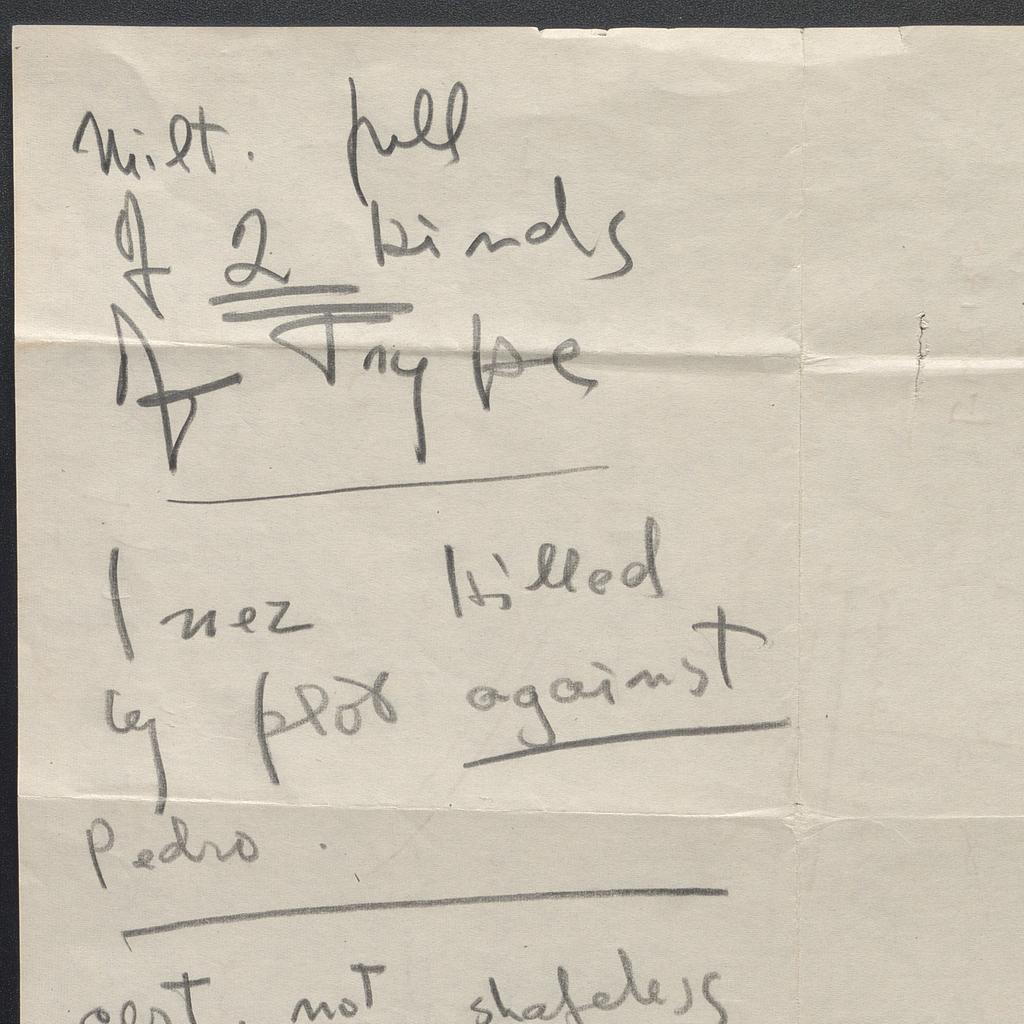 Milt. full
of 2 kinds
Inez killed
by plot against
Pedro.
cert. not shapeless